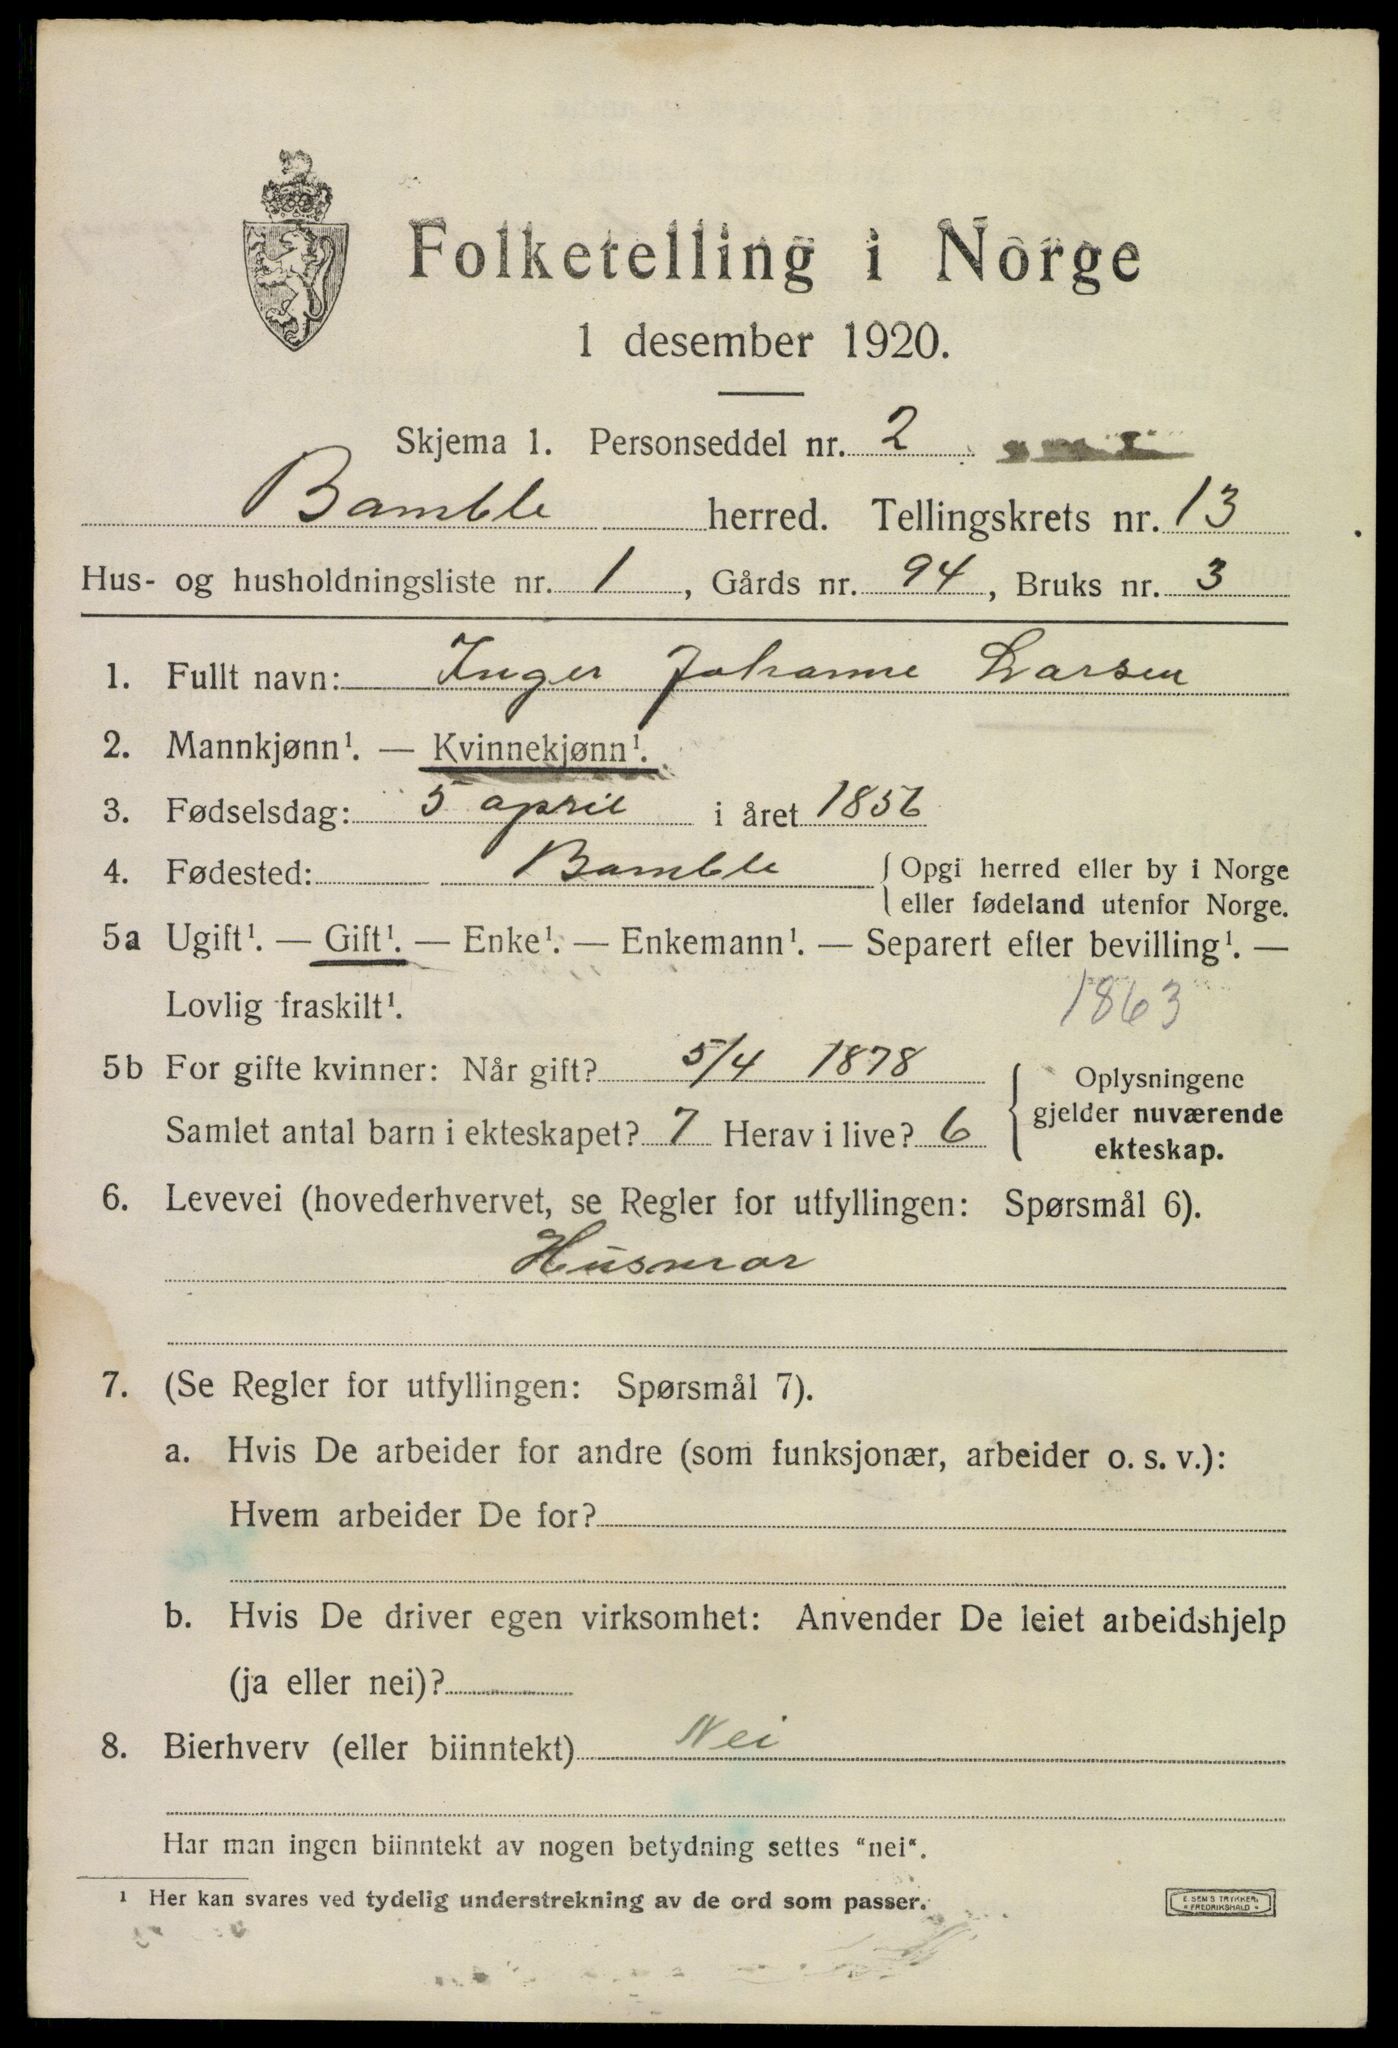 Folketelling i Norge
1 desember 1920.
Skjema 1. Personseddel nr. 2
Bamble herred. Tellingskrets nr. 13
Hus- og husholdningsliste nr. 1, Gårds nr. 94, Bruks nr. 3
1. Fullt navn: Inger Johanne Larsen
2. Mannkjønn¹. — Kvinnekjønn¹.
3. Fødselsdag: 5 april i året 1856
4. Fødested: Bamble { Opgi herred eller by i Norge
eller fødeland utenfor Norge.
5a Ugift¹. — Gift¹. — Enke¹. — Enkemann¹. — Separert efter bevilling¹. —
Lovlig fraskilt¹. 1863
5b For gifte kvinner: Når gift? 5/4 1878 { Oplysningene
gjelder nuværende
Samlet antal barn i ekteskapet? 7 Herav i live? 6
ekteskap.
6. Levevei (hovederhvervet, se Regler for utfyllingen: Spørsmål 6).
Husmor
7. (Se Regler for utfyllingen: Spørsmål 7).
a. Hvis De arbeider for andre (som funksjonær, arbeider o. s. v.):
Hvem arbeider De for?
b. Hvis De driver egen virksomhet: Anvender De leiet arbeidshjelp
(ja eller nei)?
8. Bierhverv (eller biinntekt) Nei
Har man ingen biinntekt av nogen betydning settes "nei".
¹ Her kan svares ved tydelig understrekning av de ord som passer.
E. SEMS TRYKKERI
FREDRIKSHALD